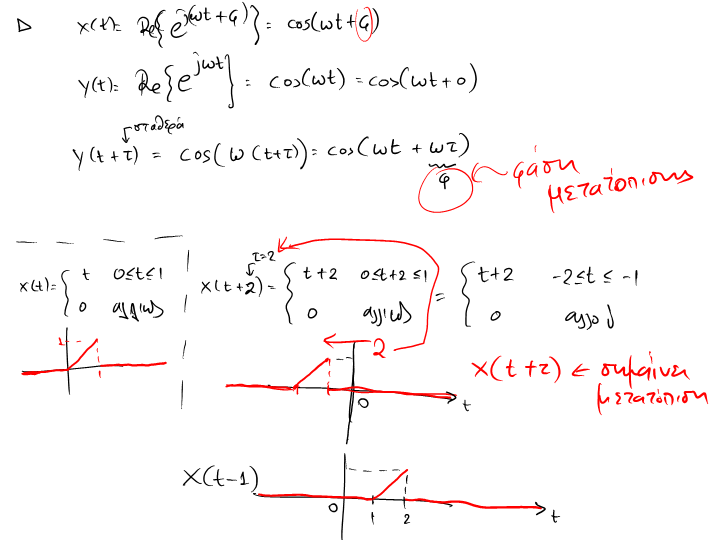 ▷ x(t)= Re{e^{j(ωt+φ)}} = cos(ωt+φ)
y(t)= Re{e^{jωt}} = cos(ωt) = cos(ωt+0)
σταθερά
y(t+τ) = cos(ω(t+τ)) = cos(ωt + ωτ)
φ
φάση
μετατόπισης
τ=2
x(t)= { t 0≤t≤1
0 αλλιώς
x(t+2)= { t+2 0≤t+2≤1
0 αλλιώς
= { t+2 -2≤t≤-1
0 αλλού
1
2
x(t+τ) ← σημαίνει
μετατόπιση
0 t
x(t-1)
0 1 2 t